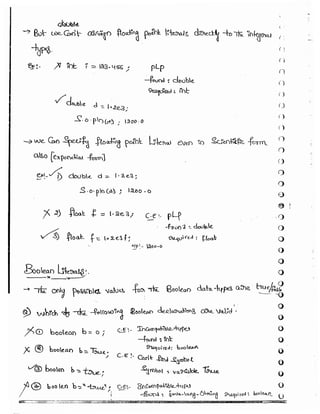 double
→ But we Can't assign floating point literals directly to the integral
types.
Eg:- X int i = 123.456 ; pLp
found : double
required : int
✓ double d = 1.2e3;
S.o.pln(d) ; 1200.0
→ we Can Specify floating point literal even in Scientific form
also [exponential form]
eg:- ✓ 1) double d = 1.2e3;
S.o.pln(d) ; 1200.0
X 2) float f = 1.2e3; C.E:- pLp
found : double
✓ 3) float f = 1.2e3f; required : float
Boolean literals:-
→ The only possible values for the Boolean data-types are true/false
② which of the following Boolean declarations are valid.
X ① boolean b = 0 ; C.E:- Incompatible types
found : int
required : boolean
X ② boolean b = True; C.E:- Can't find Symbol
✓ ③ boolean b = true; Symbol : variable True
X ④ boolean b = "true"; C.E:- Incompatible types
found : java.lang.String required : boolean